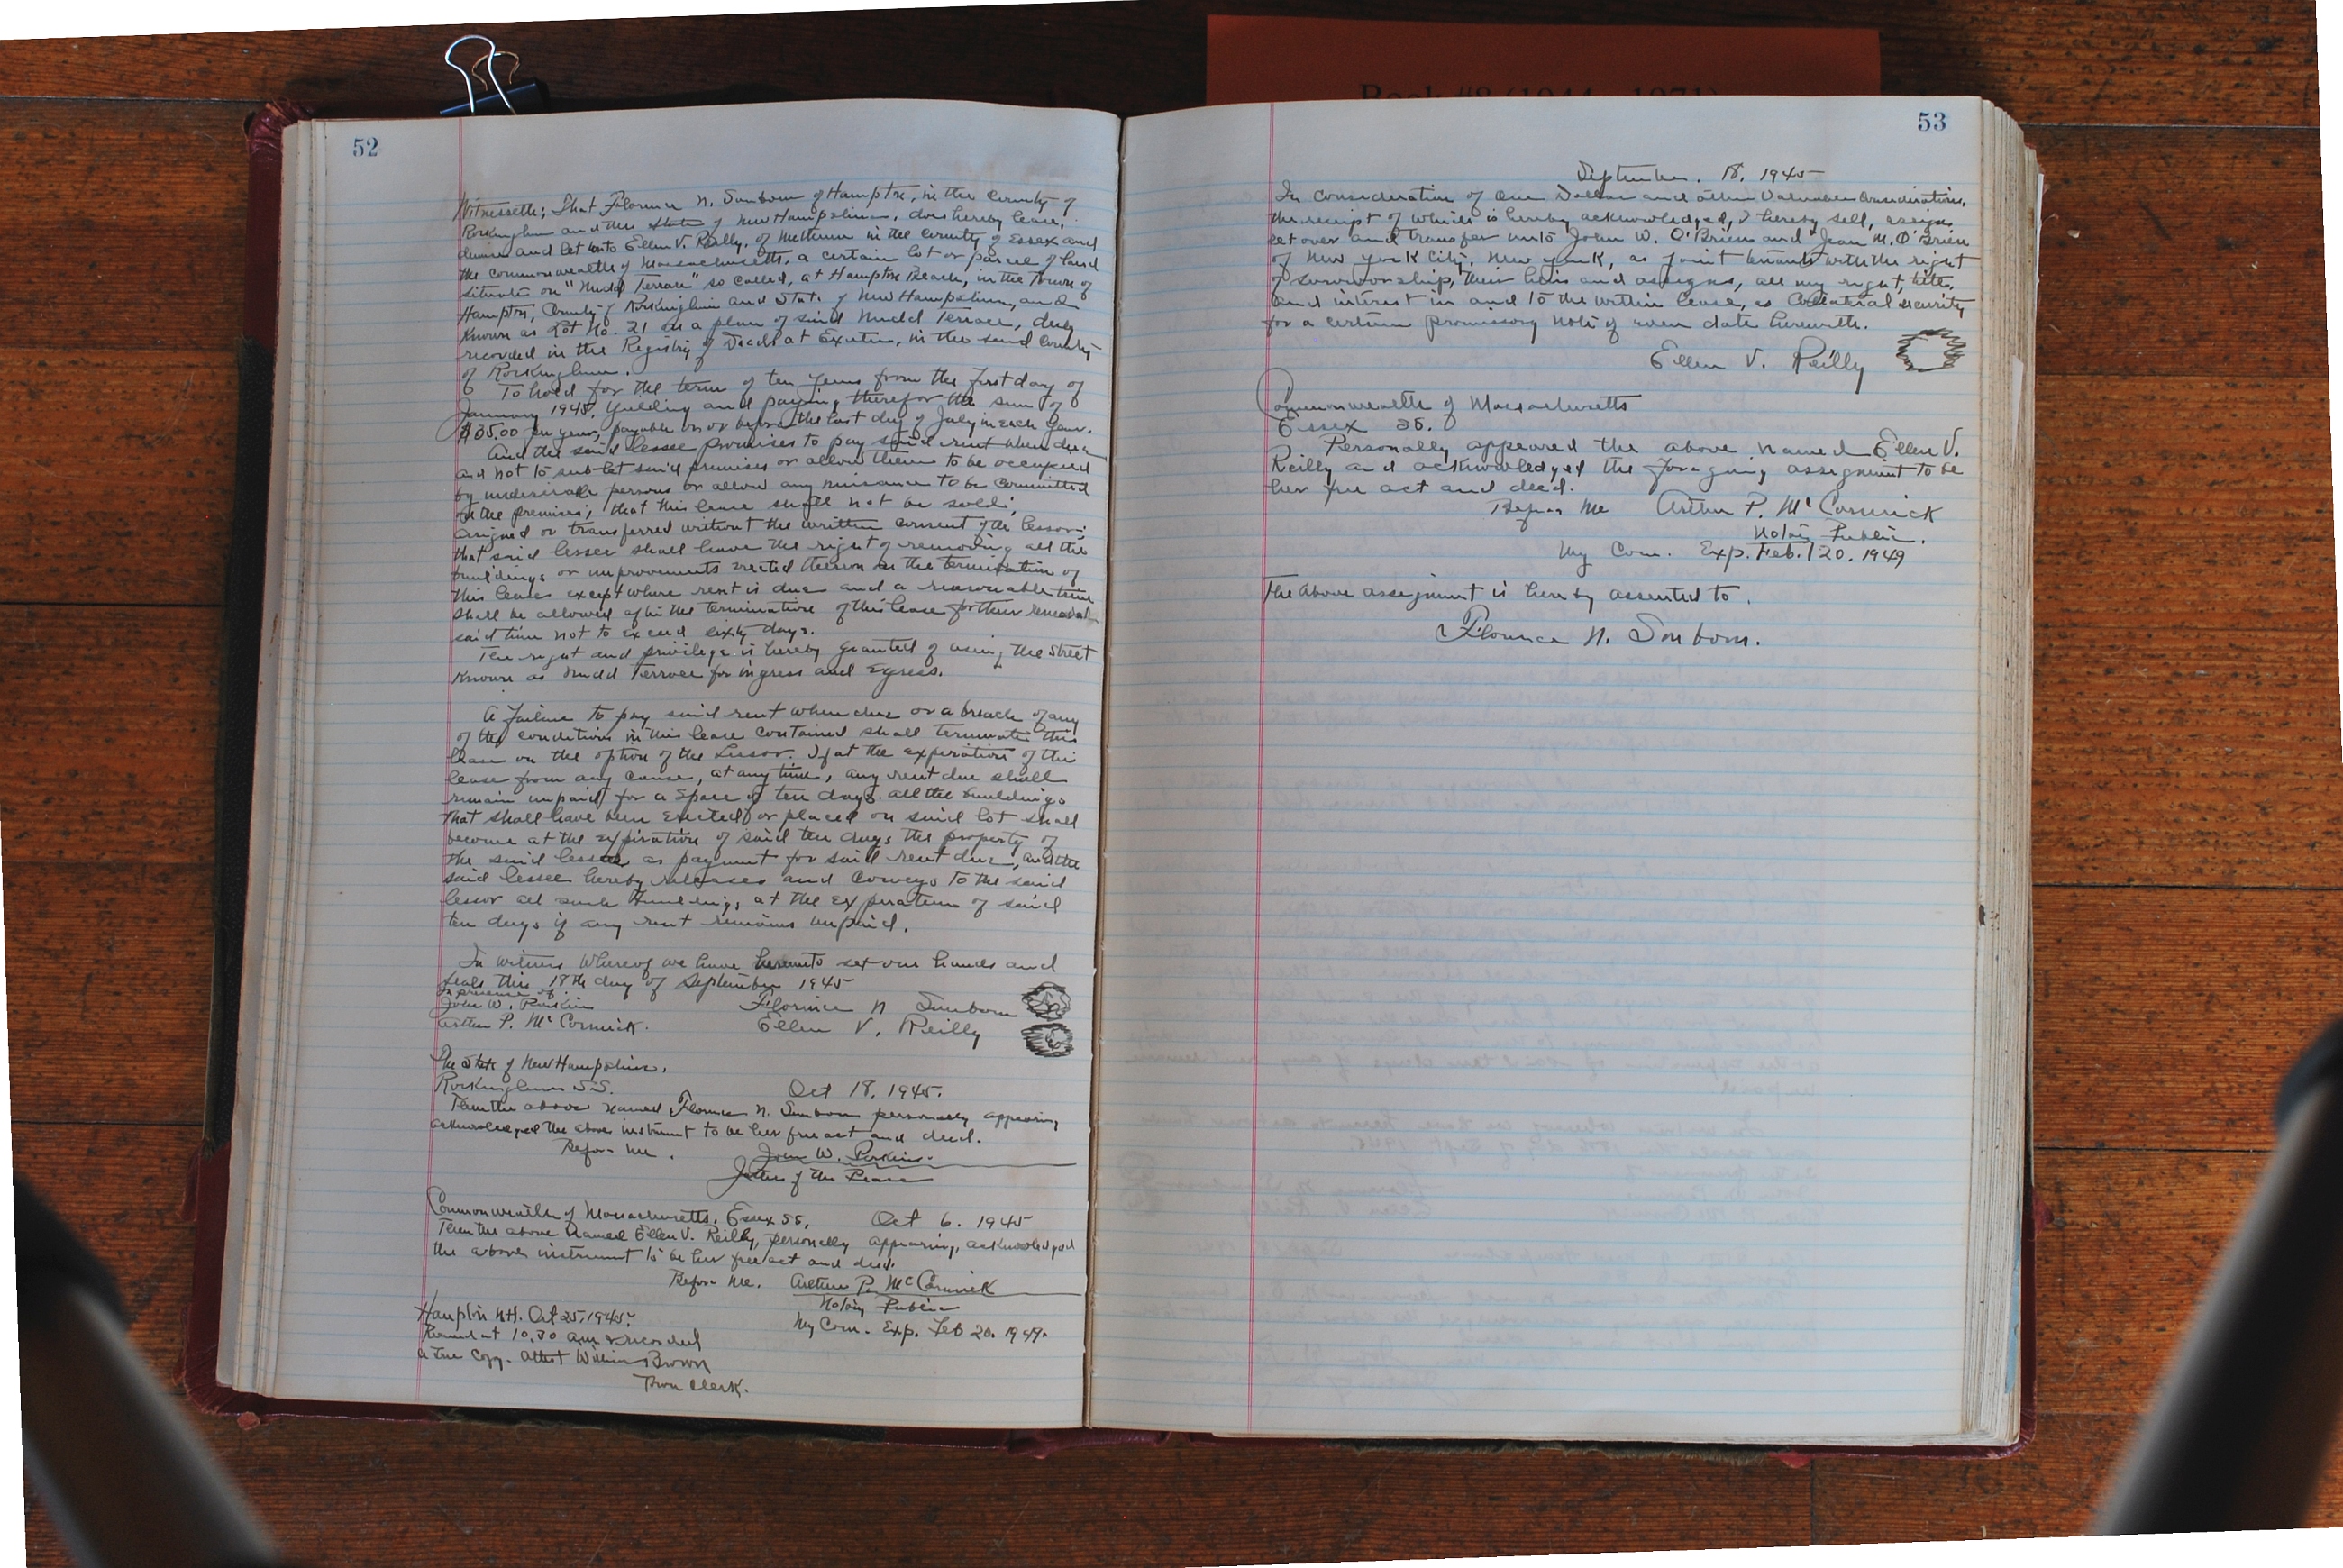 Book #8 (1944 - 1971)
52
Witnesseth; That Florence N. Sanborn of Hampton, in the County of
Rockingham and the State of New Hampshire, does hereby lease,
demise and let unto Ellen V. Reilly, of Methuen in the County of Essex and
the Commonwealth of Massachusetts, a certain lot or parcel of land
situate on "Nudd Terrace" so called, at Hampton Beach, in the Town of
Hampton, County of Rockingham and State of New Hampshire, and
known as Lot No. 21 on a plan of said Nudd Terrace, duly
recorded in the Registry of Deeds at Exeter, in the said County
of Rockingham.
To hold for the term of ten years from the first day of
January 1945. Yielding and paying therefor the sum of
$35.00 per year, payable on or before the last day of July in each year.
And the said lessee promises to pay said rent when due
and not to sub-let said premises or allow them to be occupied
by undesirable persons or allow any nuisance to be committed
on the premises; that this lease shall not be sold,
assigned or transferred without the written consent of the lessor;
that said lessee shall have the right of removing all the
buildings or improvements erected thereon on the termination of
this lease except where rent is due and a reasonable time
shall be allowed after the termination of this lease for their removal
said time not to exceed sixty days.
The right and privilege is hereby granted of using the street
known as Nudd Terrace for ingress and egress.
A failure to pay said rent when due or a breach of any
of the conditions in this lease contained shall terminate this
lease on the option of the Lessor. If at the expiration of this
lease from any cause, at any time, any rent due shall
remain unpaid for a space of ten days all the buildings
that shall have been erected or placed on said lot shall
become at the expiration of said ten days the property of
the said lessor as payment for said rent due, and the
said lessee hereby releases and conveys to the said
lessor all such buildings at the expiration of said
ten days if any rent remains unpaid.
In witness whereof we have hereunto set our hands and
seals this 19th day of September 1945
In presence of.
John W. Perkins Florence N Sanborn
Arthur P. McCormick. Ellen V. Reilly
The State of New Hampshire.
Rockingham SS. Oct 18. 1945.
Then the above named Florence N. Sanborn personally appearing
acknowledged the above instrument to be her free act and deed.
Before me. John W. Perkins.
Justice of the Peace
Commonwealth of Massachusetts. Essex SS. Oct 6. 1945
Then the above named Ellen V. Reilly, personally appearing, acknowledged
the above instrument to be her free act and deed.
Before me. Arthur P. McCormick
Notary Public
My Com. Exp. Feb 20. 1949.
Hampton N.H. Oct 25, 1945.
Received at 10.30 am & recorded
a true copy. Attest William Brown
Town Clerk.
53
September. 18, 1945
In consideration of One Dollar and other valuable considerations,
the receipt of which is hereby acknowledged, I hereby sell, assign,
set over and transfer unto John W. O'Brien and Jean M. O'Brien
of New York City, New York, as joint tenants with the right
of survivorship, their heirs and assigns, all my right, title,
and interest in and to the within lease, as collateral security
for a certain promissory note of even date herewith.
Ellen V. Reilly
Commonwealth of Massachusetts
Essex ss.
Personally appeared the above named Ellen V.
Reilly and acknowledged the foregoing assignment to be
her free act and deed.
Before Me Arthur P. McCormick
Notary Public.
My Com. Exp. Feb. 20. 1949
The above assignment is hereby assented to.
Florence N. Sanborn.